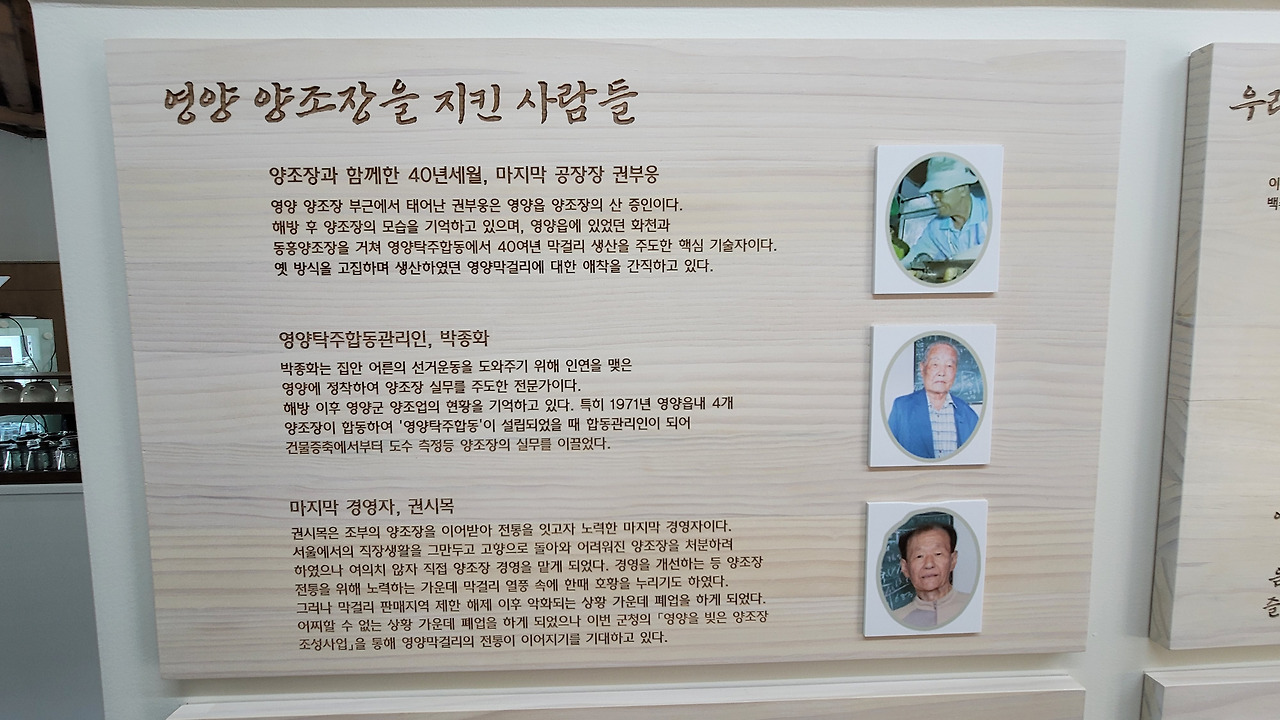 영양 양조장을 지킨 사람들
양조장과 함께한 40년세월, 마지막 공장장 권부웅
영양 양조장 부근에서 태어난 권부웅은 영양읍 양조장의 산 증인이다.
해방 후 양조장의 모습을 기억하고 있으며, 영양읍에 있었던 화천과
동흥양조장을 거쳐 영양탁주합동에서 40여년 막걸리 생산을 주도한 핵심 기술자이다.
옛 방식을 고집하며 생산하였던 영양막걸리에 대한 애착을 간직하고 있다.
영양탁주합동관리인, 박종화
박종화는 집안 어른의 선거운동을 도와주기 위해 인연을 맺은
영양에 정착하여 양조장 실무를 주도한 전문가이다.
해방 이후 영양군 양조업의 현황을 기억하고 있다. 특히 1971년 영양읍내 4개
양조장이 합동하여 '영양탁주합동'이 설립되었을 때 합동관리인이 되어
건물증축에서부터 도수 측정등 양조장의 실무를 이끌었다.
마지막 경영자, 권시목
권시목은 조부의 양조장을 이어받아 전통을 잇고자 노력한 마지막 경영자이다.
서울에서의 직장생활을 그만두고 고양으로 돌아와 어려워진 양조장을 처분하려
하였으나 여의치 않자 직접 양조장 경영을 맡게 되었다. 경영을 개선하는 등 양조장
전통을 위해 노력하는 가운데 막걸리 열풍 속에 한때 호황을 누리기도 하였다.
그러나 막걸리 판매지역 제한 해제 이후 악화되는 상황 가운데 폐업을 하게 되었다.
어찌할 수 없는 상황 가운데 폐업을 하게 되었으나 이번 군청의 「영양을 빚은 양조장
조성사업」을 통해 영양막걸리의 전통이 이어지기를 기대하고 있다.